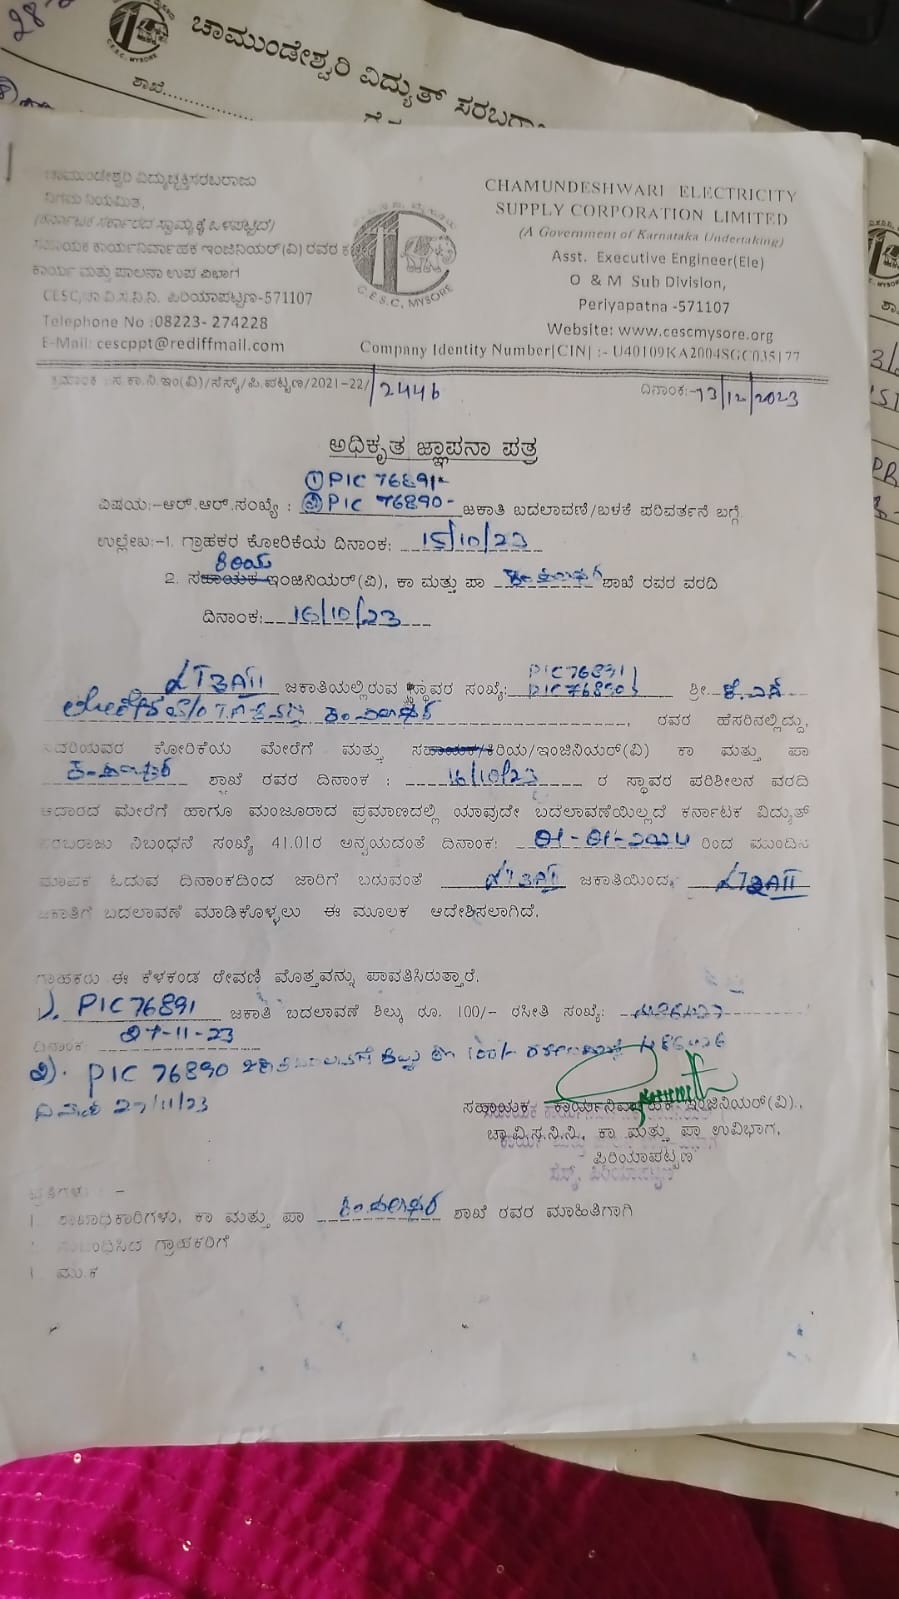 ಚಾಮುಂಡೇಶ್ವರಿ ವಿದ್ಯುತ್ ಸರಬರಾ
ಶಾಖೆ
ಚಾಮುಂಡೇಶ್ವರಿ ವಿದ್ಯುಚ್ಛಕ್ತಿಸರಬರಾಜು
ನಿಗಮ ನಿಯಮಿತ,
(ಕರ್ನಾಟಕ ಸರ್ಕಾರದ ಸ್ವಾಮ್ಯಕ್ಕೆ ಒಳಪಟ್ಟಿದೆ)
ಸಹಾಯಕ ಕಾರ್ಯನಿರ್ವಾಹಕ ಇಂಜಿನಿಯರ್(ವಿ) ರವರ ಕಛೇರಿ
ಕಾರ್ಯ ಮತ್ತು ಪಾಲನಾ ಉಪ ವಿಭಾಗ
CESC, ಚಾ.ವಿ.ಸ.ನಿ.ನಿ. ಪಿರಿಯಾಪಟ್ಟಣ-571107
Telephone No :08223- 274228
E-Mail: cescppt@rediffmail.com
C.E.S.C, MYSORE
CHAMUNDESHWARI ELECTRICITY
SUPPLY CORPORATION LIMITED
(A Government of Karnataka Undertaking)
Asst. Executive Engineer(Ele)
O & M Sub Division,
Periyapatna -571107
Website: www.cescmysore.org
Company Identity Number[CIN] :- U40109KA2004SGC035177
ಕ್ರಮಾಂಕ : ಸ.ಕಾ.ನಿ.ಇಂ(ವಿ)/ಸೆಸ್ಕ್/ಪಿ.ಪಟ್ಟಣ/2021-22/ 2446 ದಿನಾಂಕ:-13/12/2023
ಅಧಿಕೃತ ಜ್ಞಾಪನಾ ಪತ್ರ
① PIC 76891-
ವಿಷಯ:-ಆರ್.ಆರ್.ಸಂಖ್ಯೆ : ② PIC 76890- ಜಕಾತಿ ಬದಲಾವಣೆ/ಬಳಕೆ ಪರಿವರ್ತನೆ ಬಗ್ಗೆ
ಉಲ್ಲೇಖ:-1. ಗ್ರಾಹಕರ ಕೋರಿಕೆಯ ದಿನಾಂಕ: 15/10/23
ಕಿರಿಯ
2. ಸಹಾಯಕ ಇಂಜಿನಿಯರ್(ವಿ), ಕಾ ಮತ್ತು ಪಾ ಶಾಖೆ ರವರ ವರದಿ
ದಿನಾಂಕ: 16/10/23
PIC 76891
LT3AII ಜಕಾತಿಯಲ್ಲಿರುವ ಸ್ಥಾವರ ಸಂಖ್ಯೆ: PIC 76890 ಶ್ರೀ. ಕೆ.ಎಸ್
ರವರ ಹೆಸರಿನಲ್ಲಿದ್ದು,
ಸದರಿಯವರ ಕೋರಿಕೆಯ ಮೇರೆಗೆ ಮತ್ತು ಸಹಾಯಕ/ಕಿರಿಯ/ಇಂಜಿನಿಯರ್(ವಿ) ಕಾ ಮತ್ತು ಪಾ
ಶಾಖೆ ರವರ ದಿನಾಂಕ : 16/10/23 ರ ಸ್ಥಾವರ ಪರಿಶೀಲನ ವರದಿ
ಆಧಾರದ ಮೇರೆಗೆ ಹಾಗೂ ಮಂಜೂರಾದ ಪ್ರಮಾಣದಲ್ಲಿ ಯಾವುದೇ ಬದಲಾವಣೆಯಿಲ್ಲದೆ ಕರ್ನಾಟಕ ವಿದ್ಯುತ್
ಸರಬರಾಜು ನಿಬಂಧನೆ ಸಂಖ್ಯೆ 41.01ರ ಅನ್ವಯದಂತೆ ದಿನಾಂಕ: 01-01-2024 ರಿಂದ ಮುಂದಿನ
ಮಾಪಕ ಓದುವ ದಿನಾಂಕದಿಂದ ಜಾರಿಗೆ ಬರುವಂತೆ ಜಕಾತಿಯಿಂದ,
ಜಕಾತಿಗೆ ಬದಲಾವಣೆ ಮಾಡಿಕೊಳ್ಳಲು ಈ ಮೂಲಕ ಆದೇಶಿಸಲಾಗಿದೆ.
ಗ್ರಾಹಕರು ಈ ಕೆಳಕಂಡ ಠೇವಣಿ ಮೊತ್ತವನ್ನು ಪಾವತಿಸಿರುತ್ತಾರೆ.
1. PIC 76891 ಜಕಾತಿ ಬದಲಾವಣೆ ಶಿಲ್ಕು ರೂ. 100/- ರಸೀತಿ ಸಂಖ್ಯೆ:
ದಿನಾಂಕ: 27-11-23
2). PIC 76890 100/-
ದಿನಾಂಕ 27/11/23
ಸಹಾಯಕ ಕಾರ್ಯನಿರ್ವಾಹಕ ಇಂಜಿನಿಯರ್(ವಿ).,
ಚಾ.ವಿ.ಸ.ನಿ.ನಿ, ಕಾ ಮತ್ತು ಪಾ ಉವಿಭಾಗ,
ಪಿರಿಯಾಪಟ್ಟಣ
ಸೆಸ್ಕ್, ಪಿರಿಯಾಪಟ್ಟಣ
ಪ್ರತಿಗಳು : -
1. ಶಾಖಾಧಿಕಾರಿಗಳು, ಕಾ ಮತ್ತು ಪಾ ಶಾಖೆ ರವರ ಮಾಹಿತಿಗಾಗಿ
2. ಸಂಬಂಧಿಸಿದ ಗ್ರಾಹಕರಿಗೆ
ಮು.ಕ